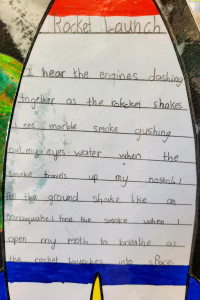 Rocket Launch
I hear the engines daching
together as the rakcket shakes.
I see marble smoke gushing
out my eyes water when the
smoke travels up my nostrall
the ground shake like an
the smoke when I
open my moth to breathe as
the rocket launches into space.